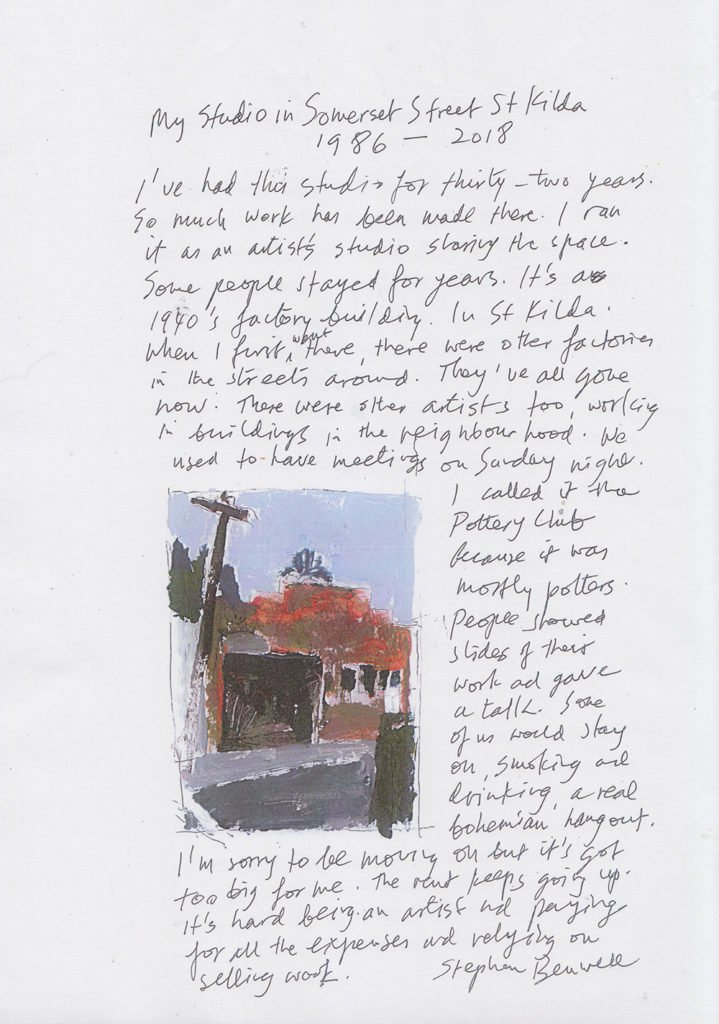 My Studio in Somerset Street St Kilda
1986 — 2018
I've had this studio for thirty-two years.
So much work has been made there. I ran
it as an artist's studio sharing the space.
Some people stayed for years. It's a
1940's factory building. In St Kilda.
When I first went there, there were other factories
in the streets around. They've all gone
now. There were other artists too, working
in buildings in the neighbourhood. We
used to have meetings on Sunday night.
I called it the
Pottery Club
because it was
mostly potters.
People showed
slides of their
work and gave
a talk. Some
of us would stay
on, smoking and
drinking, a real
bohemian hangout.
I'm sorry to be moving on but it's got
too big for me. The rent keeps going up.
It's hard being an artist and paying
for all the expenses and relying on
selling work.
Stephen Benwell